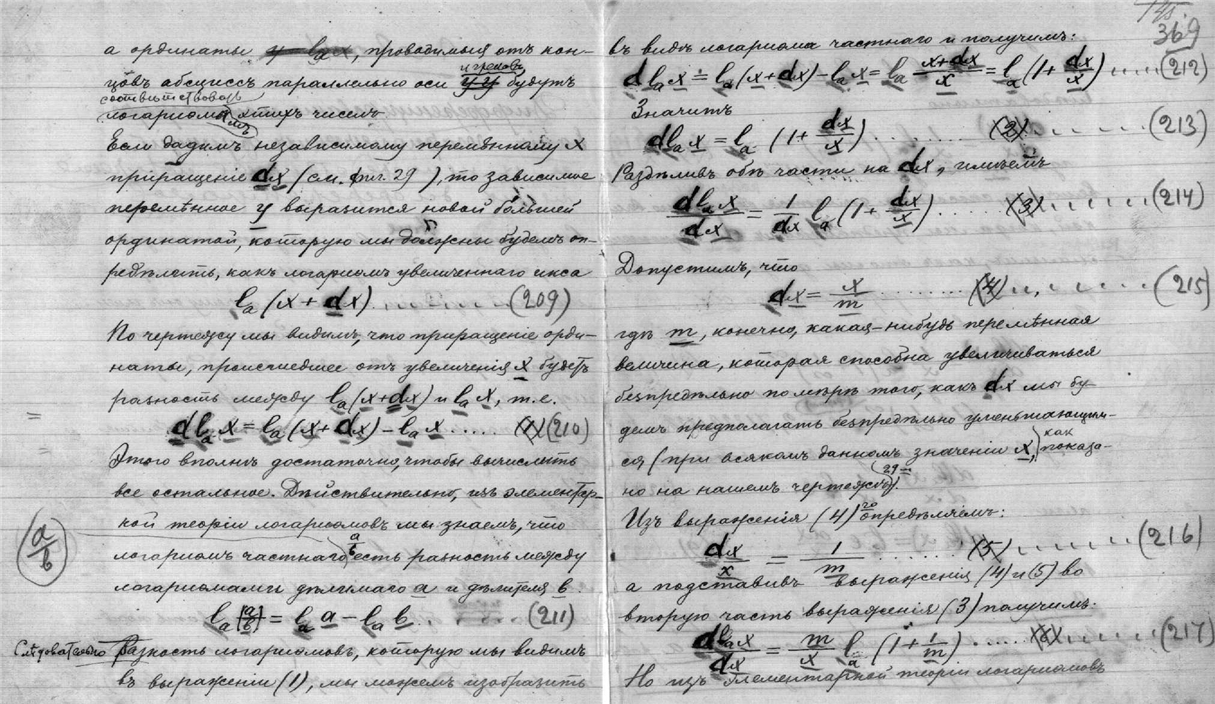 а ординаты, проводимыя отъ кон-
цовъ абсциссъ параллельно оси игрековъ будутъ
соотвѣтствовать
логариѳмамъ этихъ чиселъ
Если дадимъ независимому перемѣнному x
приращеніе dx (см. фиг. 29), то зависимое
перемѣнное y выразится новой большей
ординатой, которую мы должны будемъ оп-
редѣлить, какъ логариѳмъ увеличеннаго икса
la (x + dx) ......... (209)
По чертежу мы видимъ, что приращеніе орди-
наты, происшедшее отъ увеличенія x будетъ
разность между la (x+dx) и la x, т.е.
d la x = la (x + dx) - la x ..... (1) (210)
Этого вполнѣ достаточно, чтобы вычислить
все остальное. Дѣйствительно, изъ элементар-
ной теоріи логариѳмовъ мы знаемъ, что
a/b
логариѳмъ частнаго a/b есть разность между
логариѳмами дѣлимаго a и дѣлителя b
la [a/b] = la a - la b ..... (211)
Слѣдовательно Разность логариѳмовъ, которую мы видимъ
въ выраженіи (1), мы можемъ изобразить
369
въ видѣ логариѳма частнаго и получимъ:
d la x = la (x + dx) - la x = la (x+dx)/x = la (1 + dx/x) ..... (212)
Значитъ
d la x = la (1 + dx/x) ........ (2) ..... (213)
Раздѣливъ обѣ части на dx, имѣемъ
d la x/dx = 1/dx la (1 + dx/x) ....... (3) ..... (214)
Допустимъ, что
dx = x/m ........ (4) ..... (215)
гдѣ m, конечно, какая-нибудь перемѣнная
величина, которая способна увеличиваться
безпредѣльно по мѣрѣ того, какъ dx мы бу-
демъ предполагать безпредѣльно уменьшающим-
ся (при всякомъ данномъ значеніи x), какъ показа-
но на нашемъ чертежѣ 29-мъ.
Изъ выраженія (4)го опредѣляемъ:
dx/x = 1/m ........ (5) ..... (216)
а подставивъ выраженія (4) и (5) во
вторую часть выраженія (3) получимъ:
d la x/dx = m/x la (1 + 1/m) ...... (6) ..... (217)
Но изъ элементарной теоріи логариѳмовъ